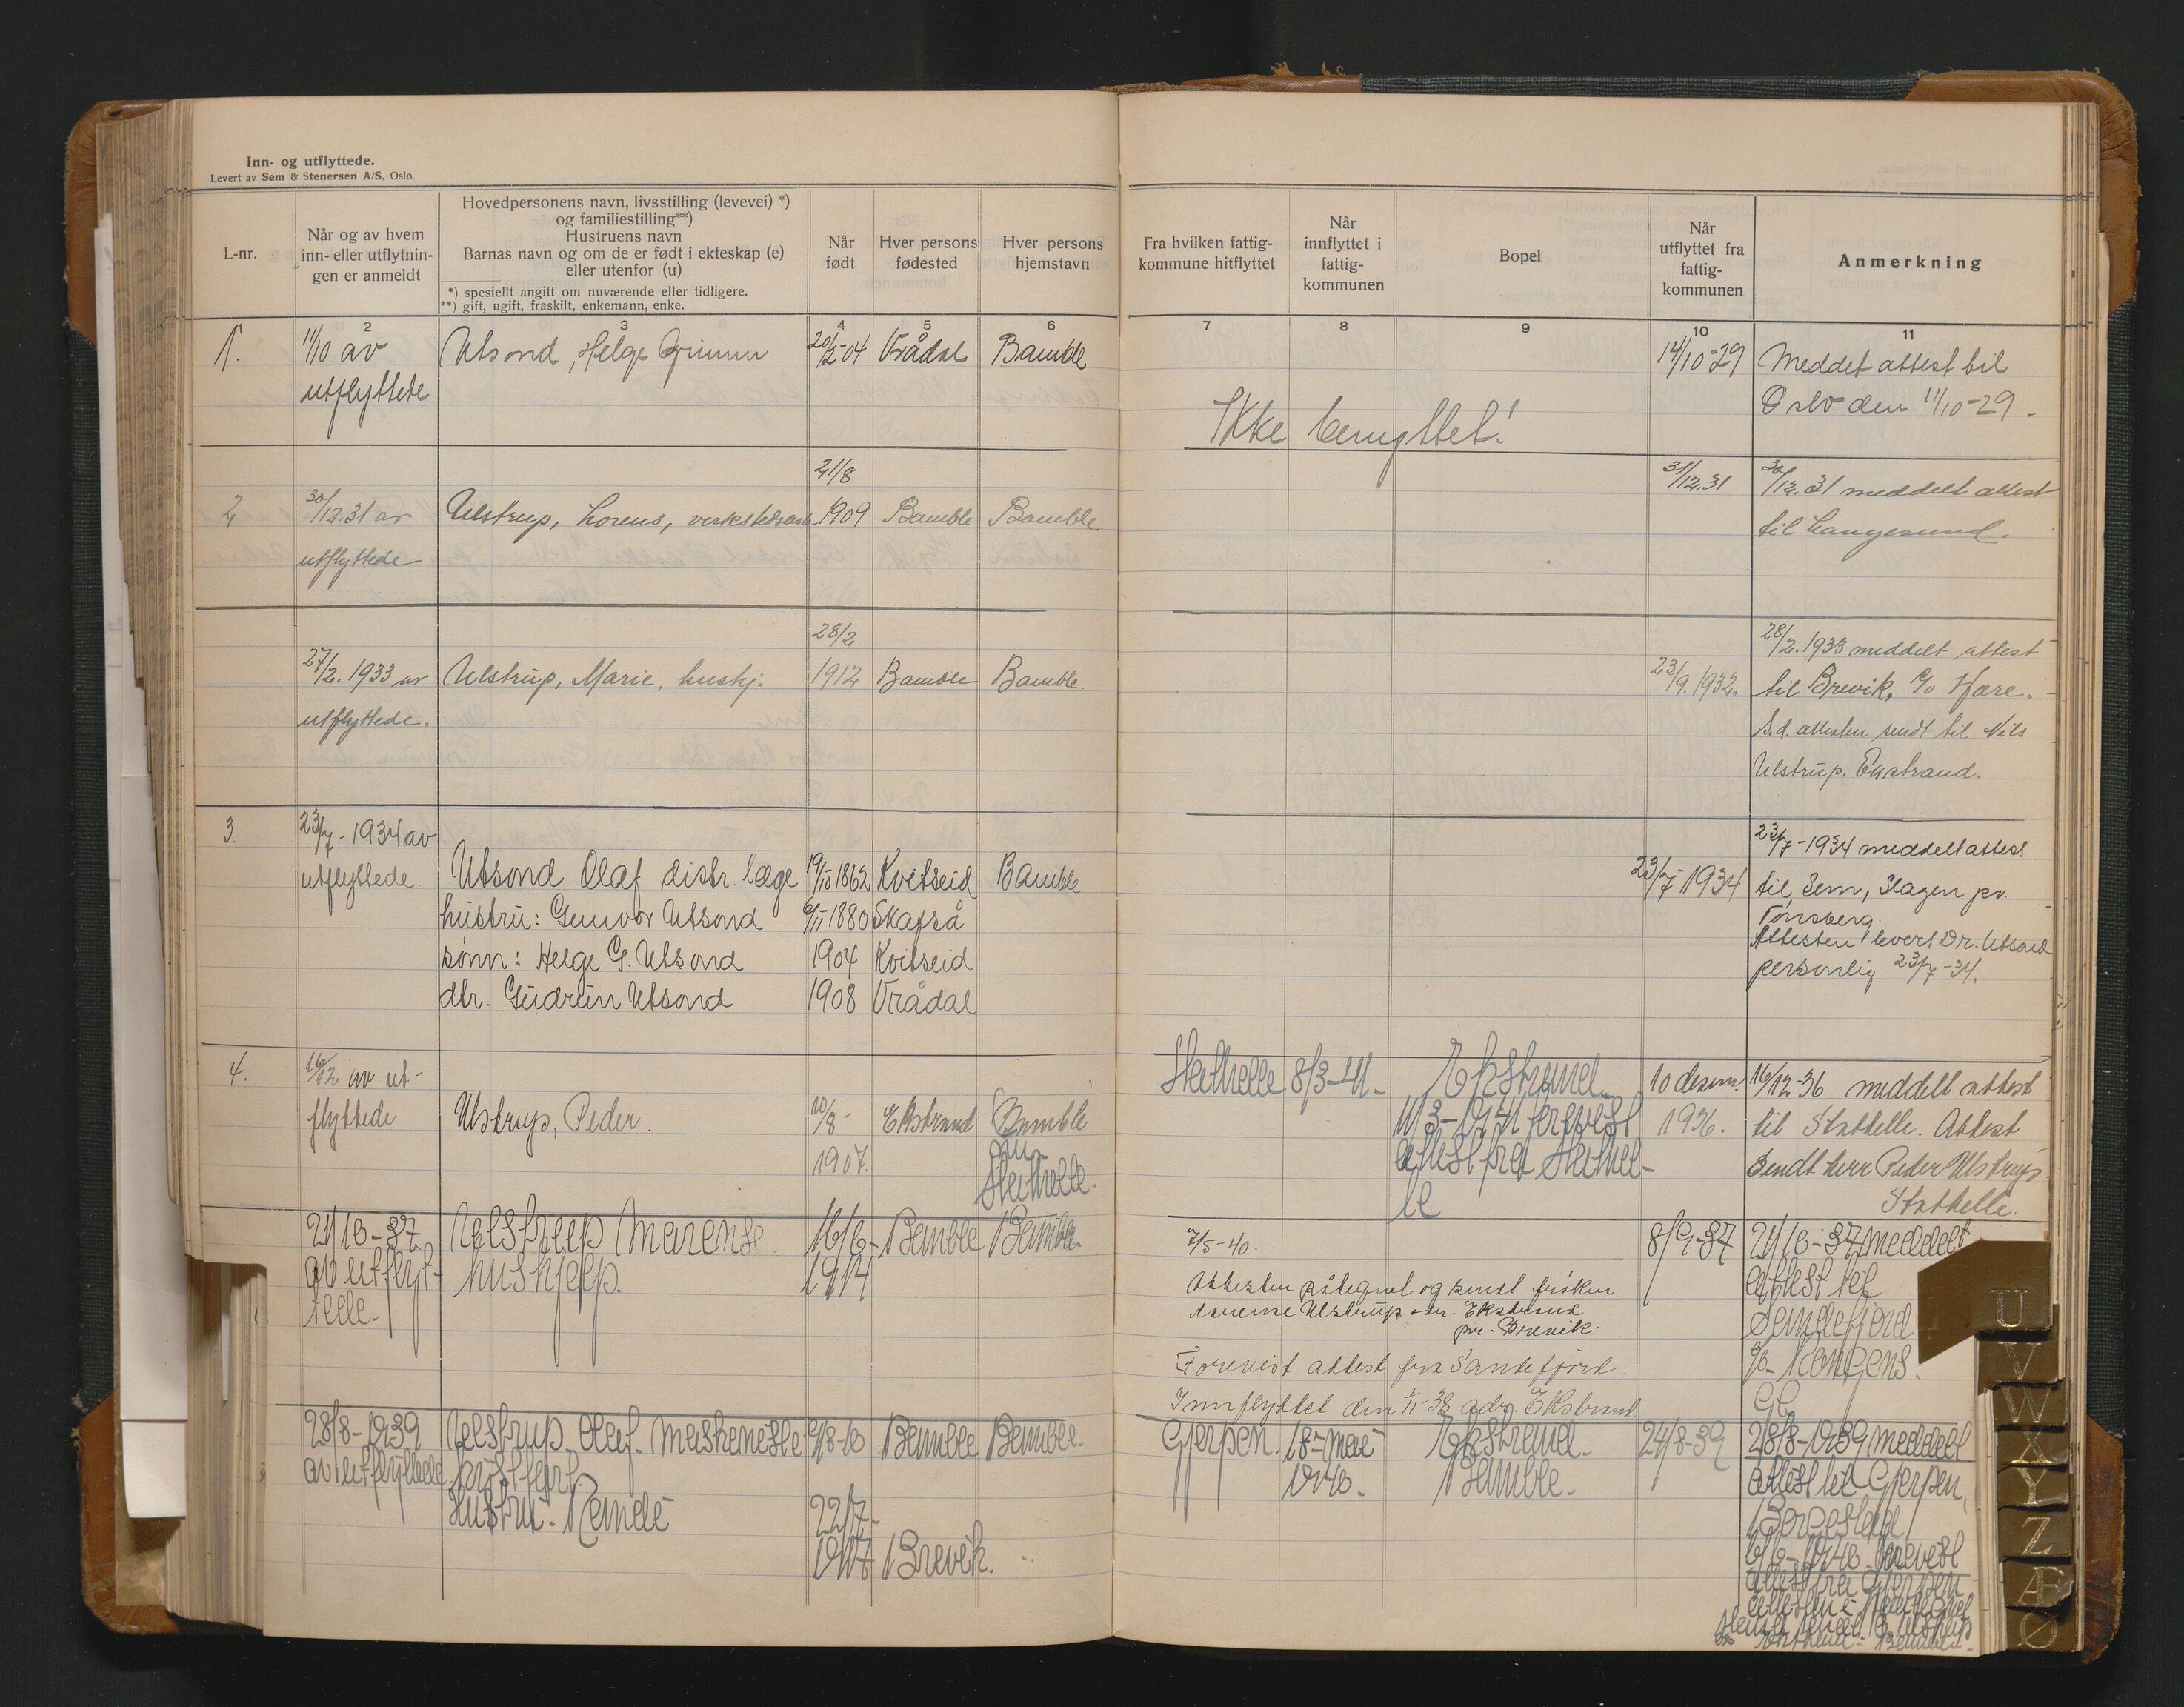 Inn- og utflyttede.
Levert av Sem & Stenersen A/S. Oslo.
L-nr.
Når og av hvem
inn- eller utflytnin-
gen er anmeldt
Hovedpersonens navn, livsstilling (levevei) *)
og familiestilling**)
Hustruens navn
Barnas navn og om de er født i ekteskap (e)
eller utenfor (u)
*) spesiellt angitt om nuværende eller tidligere.
**) gift, ugift, fraskilt, enkemann, enke.
Når
født
Hver persons
fødested
Hver persons
hjemstavn
Fra hvilken fattig-
kommune hitflyttet
Når
innflyttet i
fattig-
kommunen
Bopel
Når
utflyttet fra
fattig-
kommunen
Anmerkning
2 3 4 5 6 7 8 9 10 11
1. 11/10 av Utsond, Helge Grimm 20/2-04 Vrådal Bamble 14/10-29 Meddet attest til
utflyttede Oslo den 11/10-29.
Ikke benyttet!
21/8 31/12.31 30/12.31 meddelt attest
2 30/12.31 av Ulstrup, Lorens, verkstedsarb. 1909 Bamble Bamble til Langesund.
utflyttede
28/2 28/2.1933 meddelt attest
27/2.1933 av Ulstrup, Marie, hushj. 1912 Bamble Bamble. 23/9.1932. til Brevik, c/o Hare.
utflyttede. S.d. attesten sendt til Nils
Ulstrup. Ekstrand.
3. 23/7-1934 av 23/7-1934 meddelt attest
utflyttede Utsond Olaf distr. læge 19/10 1862 Kvitseid Bamble 23/7-1934 til Sem, Slagen pr.
hustru: Gunvor Utsond 6/11 1880 Skafså Tønsberg.
Attesten levert Dr. Utsond
sønn: Helge G. Utsond 1904 Kvitseid personlig 23/7-34.
dtr. Gudrun Utsond 1908 Vrådal
4. 16/12 av ut- Stathelle 8/3-41. Ekstrand 10 desem. 16/12-36 meddelt attest
flyttede Ulstrup, Peder. 10/8- Ekstrand Bamble 11/3-1941 forevist 1936. til Stathelle. Attest
1907. nu attest fra Stathel- sendt herr Peder Ulstrup
Stathelle. le Stathelle.
21/10-37 Ulstrup Marense 16/6- Bamble Bamble 7/5-40. 8/9-37 21/10-37 meddelt
av utflyt- hushjelp. 1914 Attesten påtegnet og sendt frøken attest til
tede- Marense Ulstrup adr. Ekstrand Sandefjord
pr. Brevik.
Forevist attest fra Sandefjord. c/o Kongens
Innflyttet den 1/11-38 adr. Ekstrand Gt.
28/8-1939 Ulstrup Olaf Maskeniste 9/8-10 Bamble Bamble Gjerpen. 18-mai Ekstrand 24/8-39 28/8-1939 meddelt
av utflyttede 1940. Bamble attest til Gjerpen,
Hustru: Randi 22/7- Borgestad
1917 Brevik. 6/6-1940 forevist
attest fra Gjerpen
U
V
W
X
Y
Z
Æ
Ø